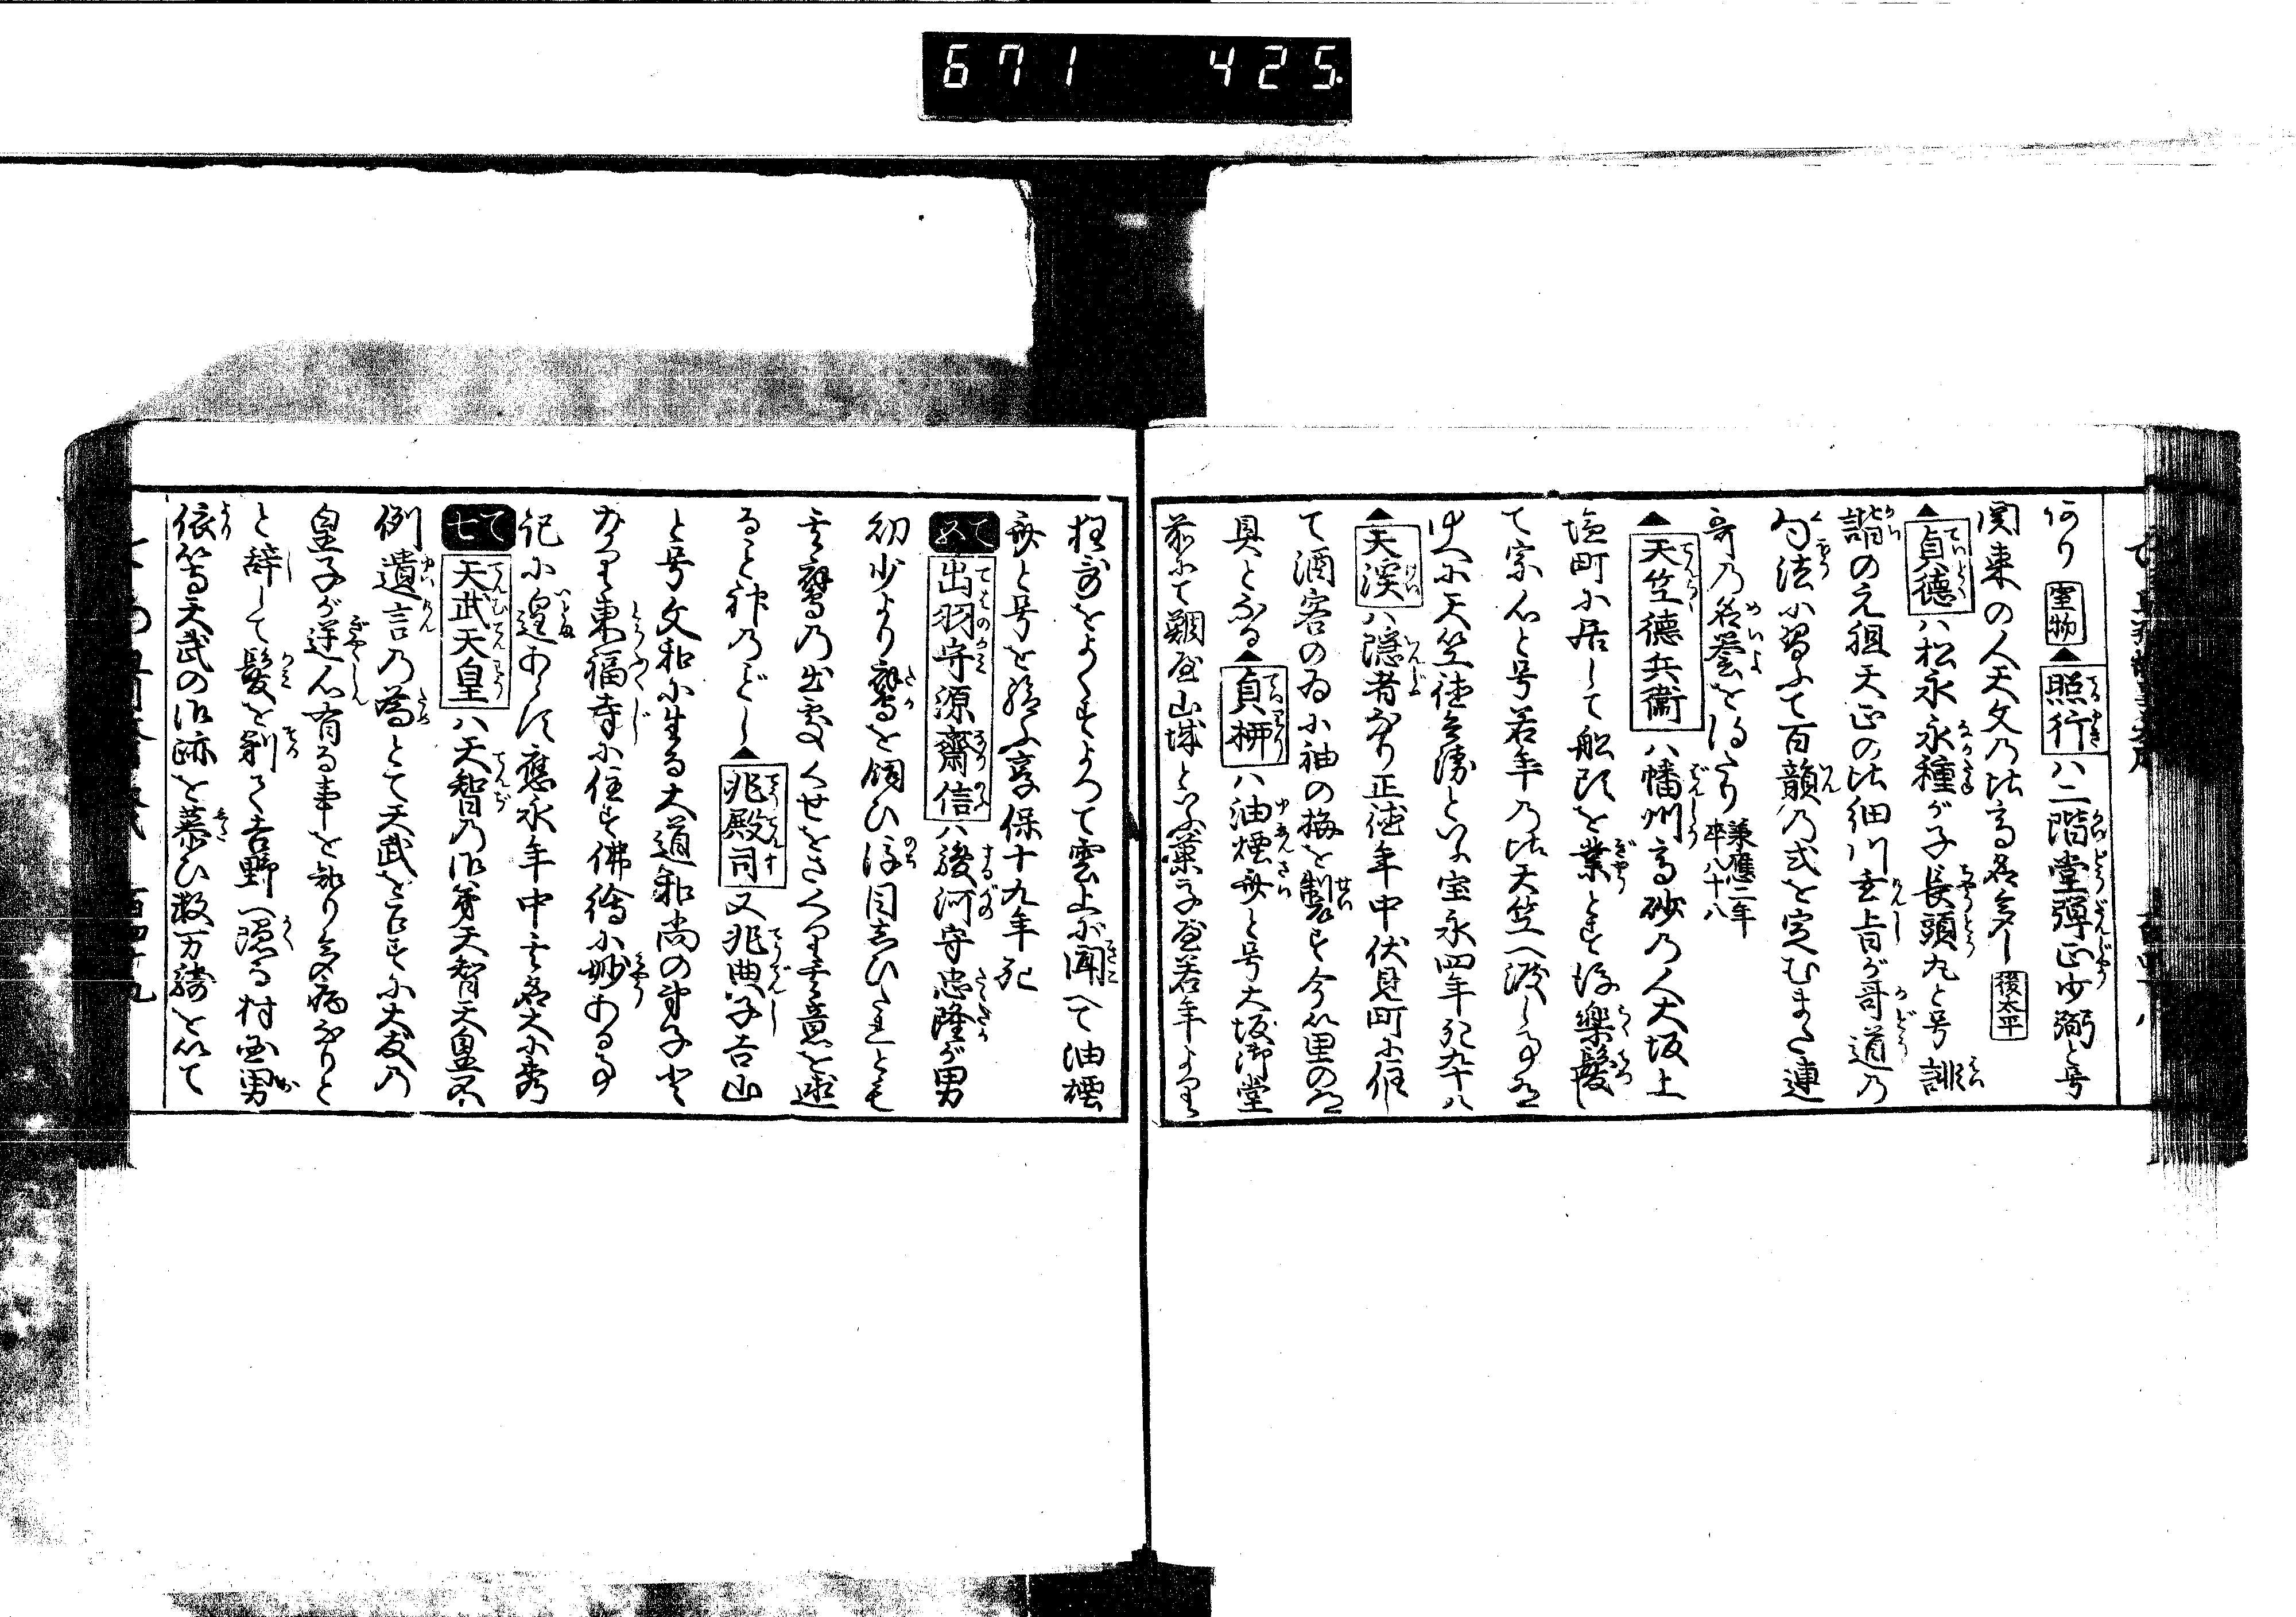 671 425
何り 室物 ▲照行ハ二階堂弾正少弼と号
関東の人天文乃比高名多し 後太平
▲貞徳ハ松永永種が子長頭丸と号誹
諧の元祖天正の比細川玄旨が哥道乃
句法小習ふて百韻乃式を定むまた連
哥乃名誉を得たり 承應二年 卒八十八
▲天竺徳兵衞ハ幡州高砂乃人大坂上
塩町小居して船頭を業とす後楽髪し
て宗心と号若年乃比天竺へ渡し事有
ゆへ小天竺徳兵衛といふ宝永四年死九十八
▲天渓ハ隠者なり正徳年中伏見町小住
て酒客の為小袖の梅を製す今此里の名
具となる▲貞柳ハ油煙斎と号大坂御堂
前ふて鯛屋山城といふ菓子屋若年より
狂哥をよくすよつて雲上が聞へて油煙
斎と号を給ふ享保十九年死
て五 出羽守源齋信ハ駿河守忠隆が男
幼少より鷹を飼ひ後目しひたれとも
其鷹乃出處くせをさくり其意を述
ると神乃ごとし▲兆殿司又兆典子吉山
と号文和小生る大道和尚の弟子
なり東福寺小住す佛絵小妙ある事
記小遑あらす應永年中其名大小秀
て七 天武天皇ハ天智乃御弟天智天皇不
例遺言乃為とて天武を召す小大友乃
皇子が逆心有る事を知り多病なりと
と辞して髪を剃て吉野へ隠る村国男
依等天武の御跡を慕ひ数万騎を以て